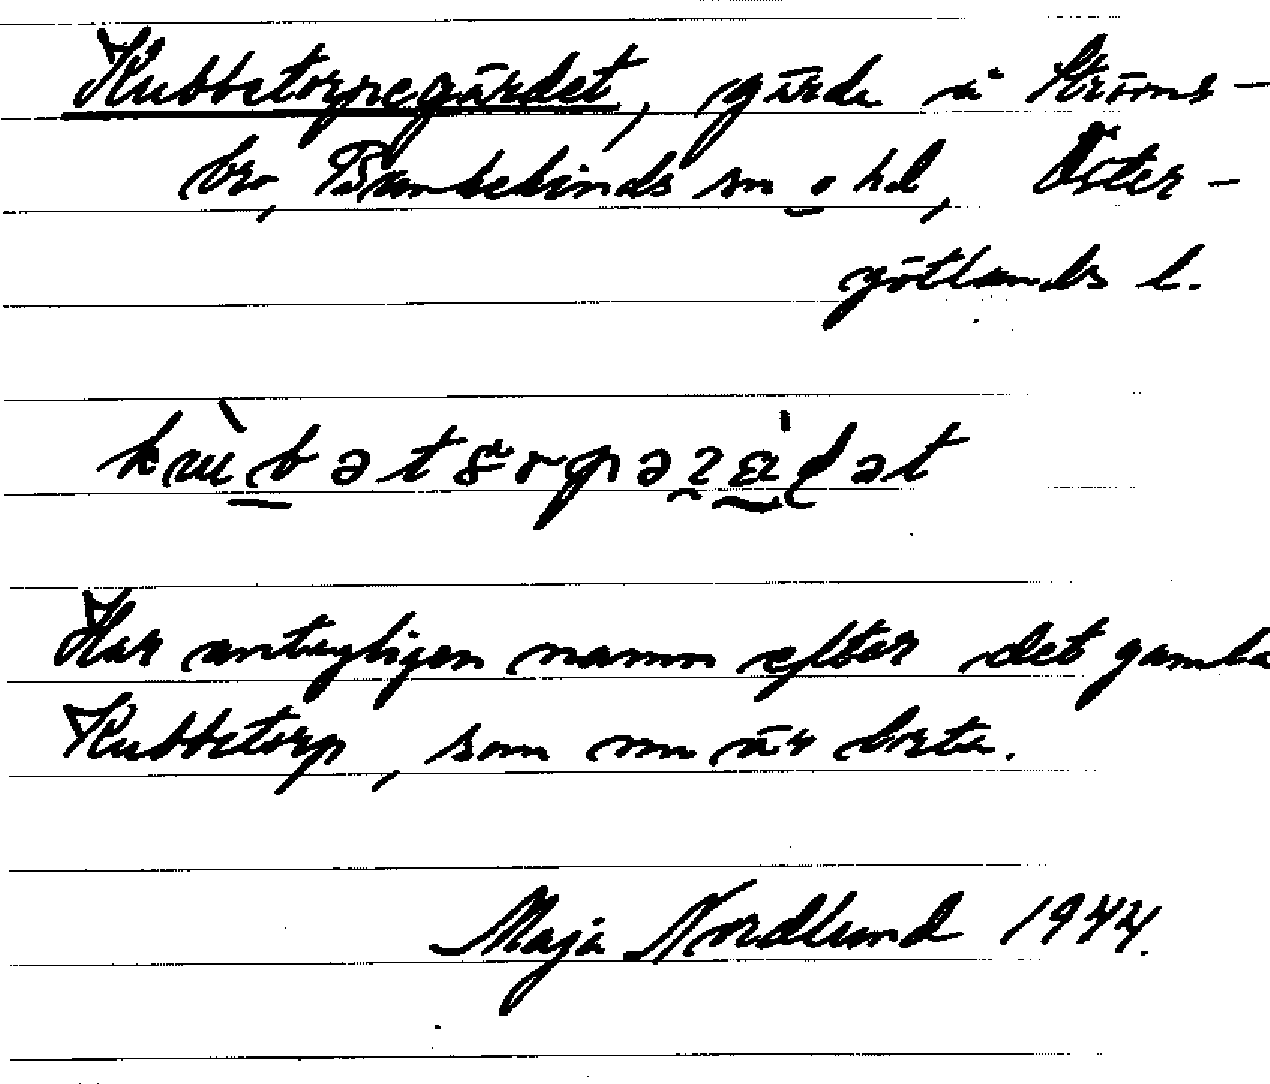 Kubbetorpegärdet, gärde å Ströms-
bro, Bankekinds sn o hd, Öster-
götlands l.
Har antagligen namn efter det gamla
Kubbetorp, som nu är borta.
Maja Nordlund 1944.